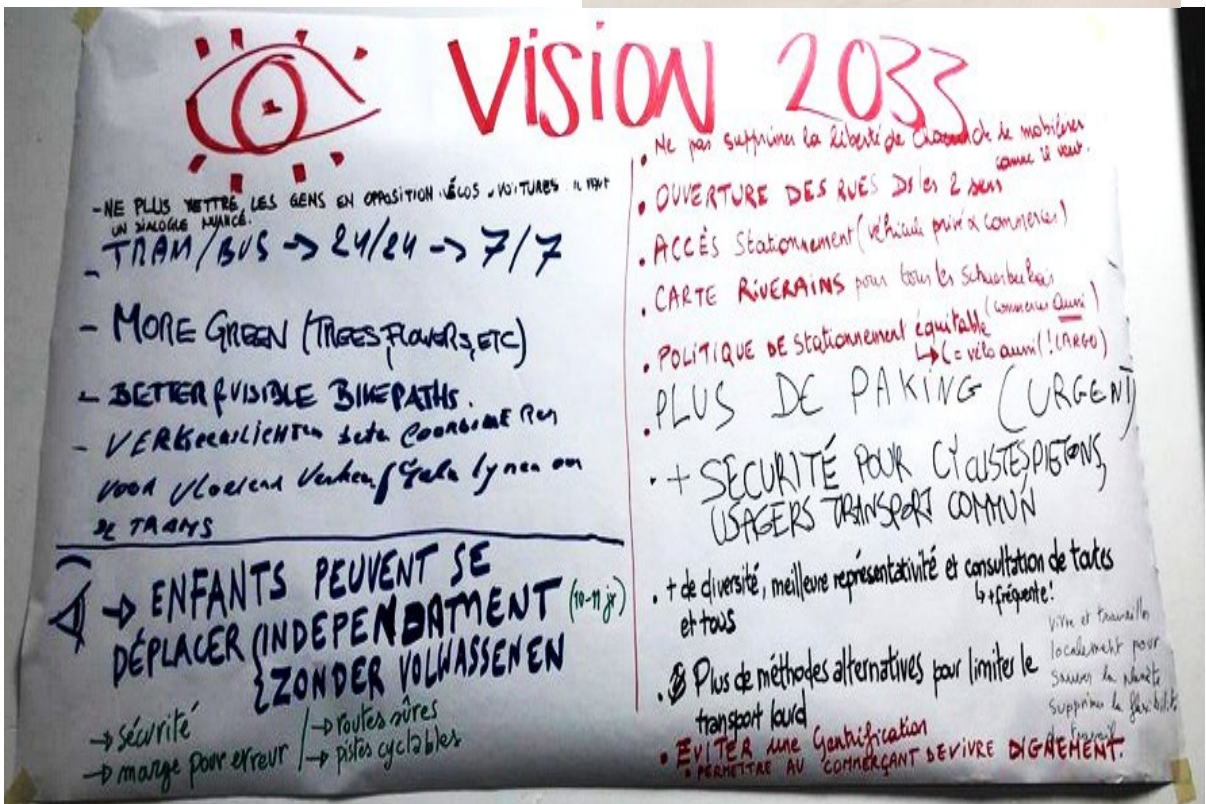 VISION 2033
-NE PLUS METTRE LES GENS EN OPPOSITION VÉLOS VOITURES. IL FAUT
UN DIALOGUE NUANCÉ.
- TRAM/BUS → 24/24 → 7/7
- MORE GREEN (TREES, FLOWERS, ETC)
- BETTER & VISIBLE BIKEPATHS.
- VERKEERSLICHTEN beter
voor vloeiend Verkeer / lynen
TRAMS
→ ENFANTS PEUVENT SE
DÉPLACER (INDEPENDATMENT (10-11 jr)
ZONDER VOLWASSENEN
→ sécurité
→ marge pour erreur
→ routes sûres
→ pistes cyclables
• Ne pas supprimer la liberté de chacun de mobiliser
comme il veut.
• OUVERTURE DES RUES Ds les 2 sens
• ACCÈS Stationnement (véhicule privé & commerces)
• CARTE RiVERAINS pour tous les Schaerbeekois
(commerces Aussi)
• POLITIQUE DE Stationnement équitable
↳ (= vélo aussi (! CARGO)
• PLUS DE PAKING (URGENT)
• + SÉCURITÉ POUR CYCLISTES, PIETONS,
USAGERS TRANSPORT COMMUN
• + de diversité, meilleure représentativité et consultation de toutes
et tous
↳ + fréquente!
• Plus de méthodes alternatives pour limiter le
transport lourd
vivre et travailler
localement pour
sauver la planète
supprimer la flexibilité
travail
• EVITER une Gentrification
• PERMETTRE AU COMMERÇANT DE VIVRE DIGNEMENT.